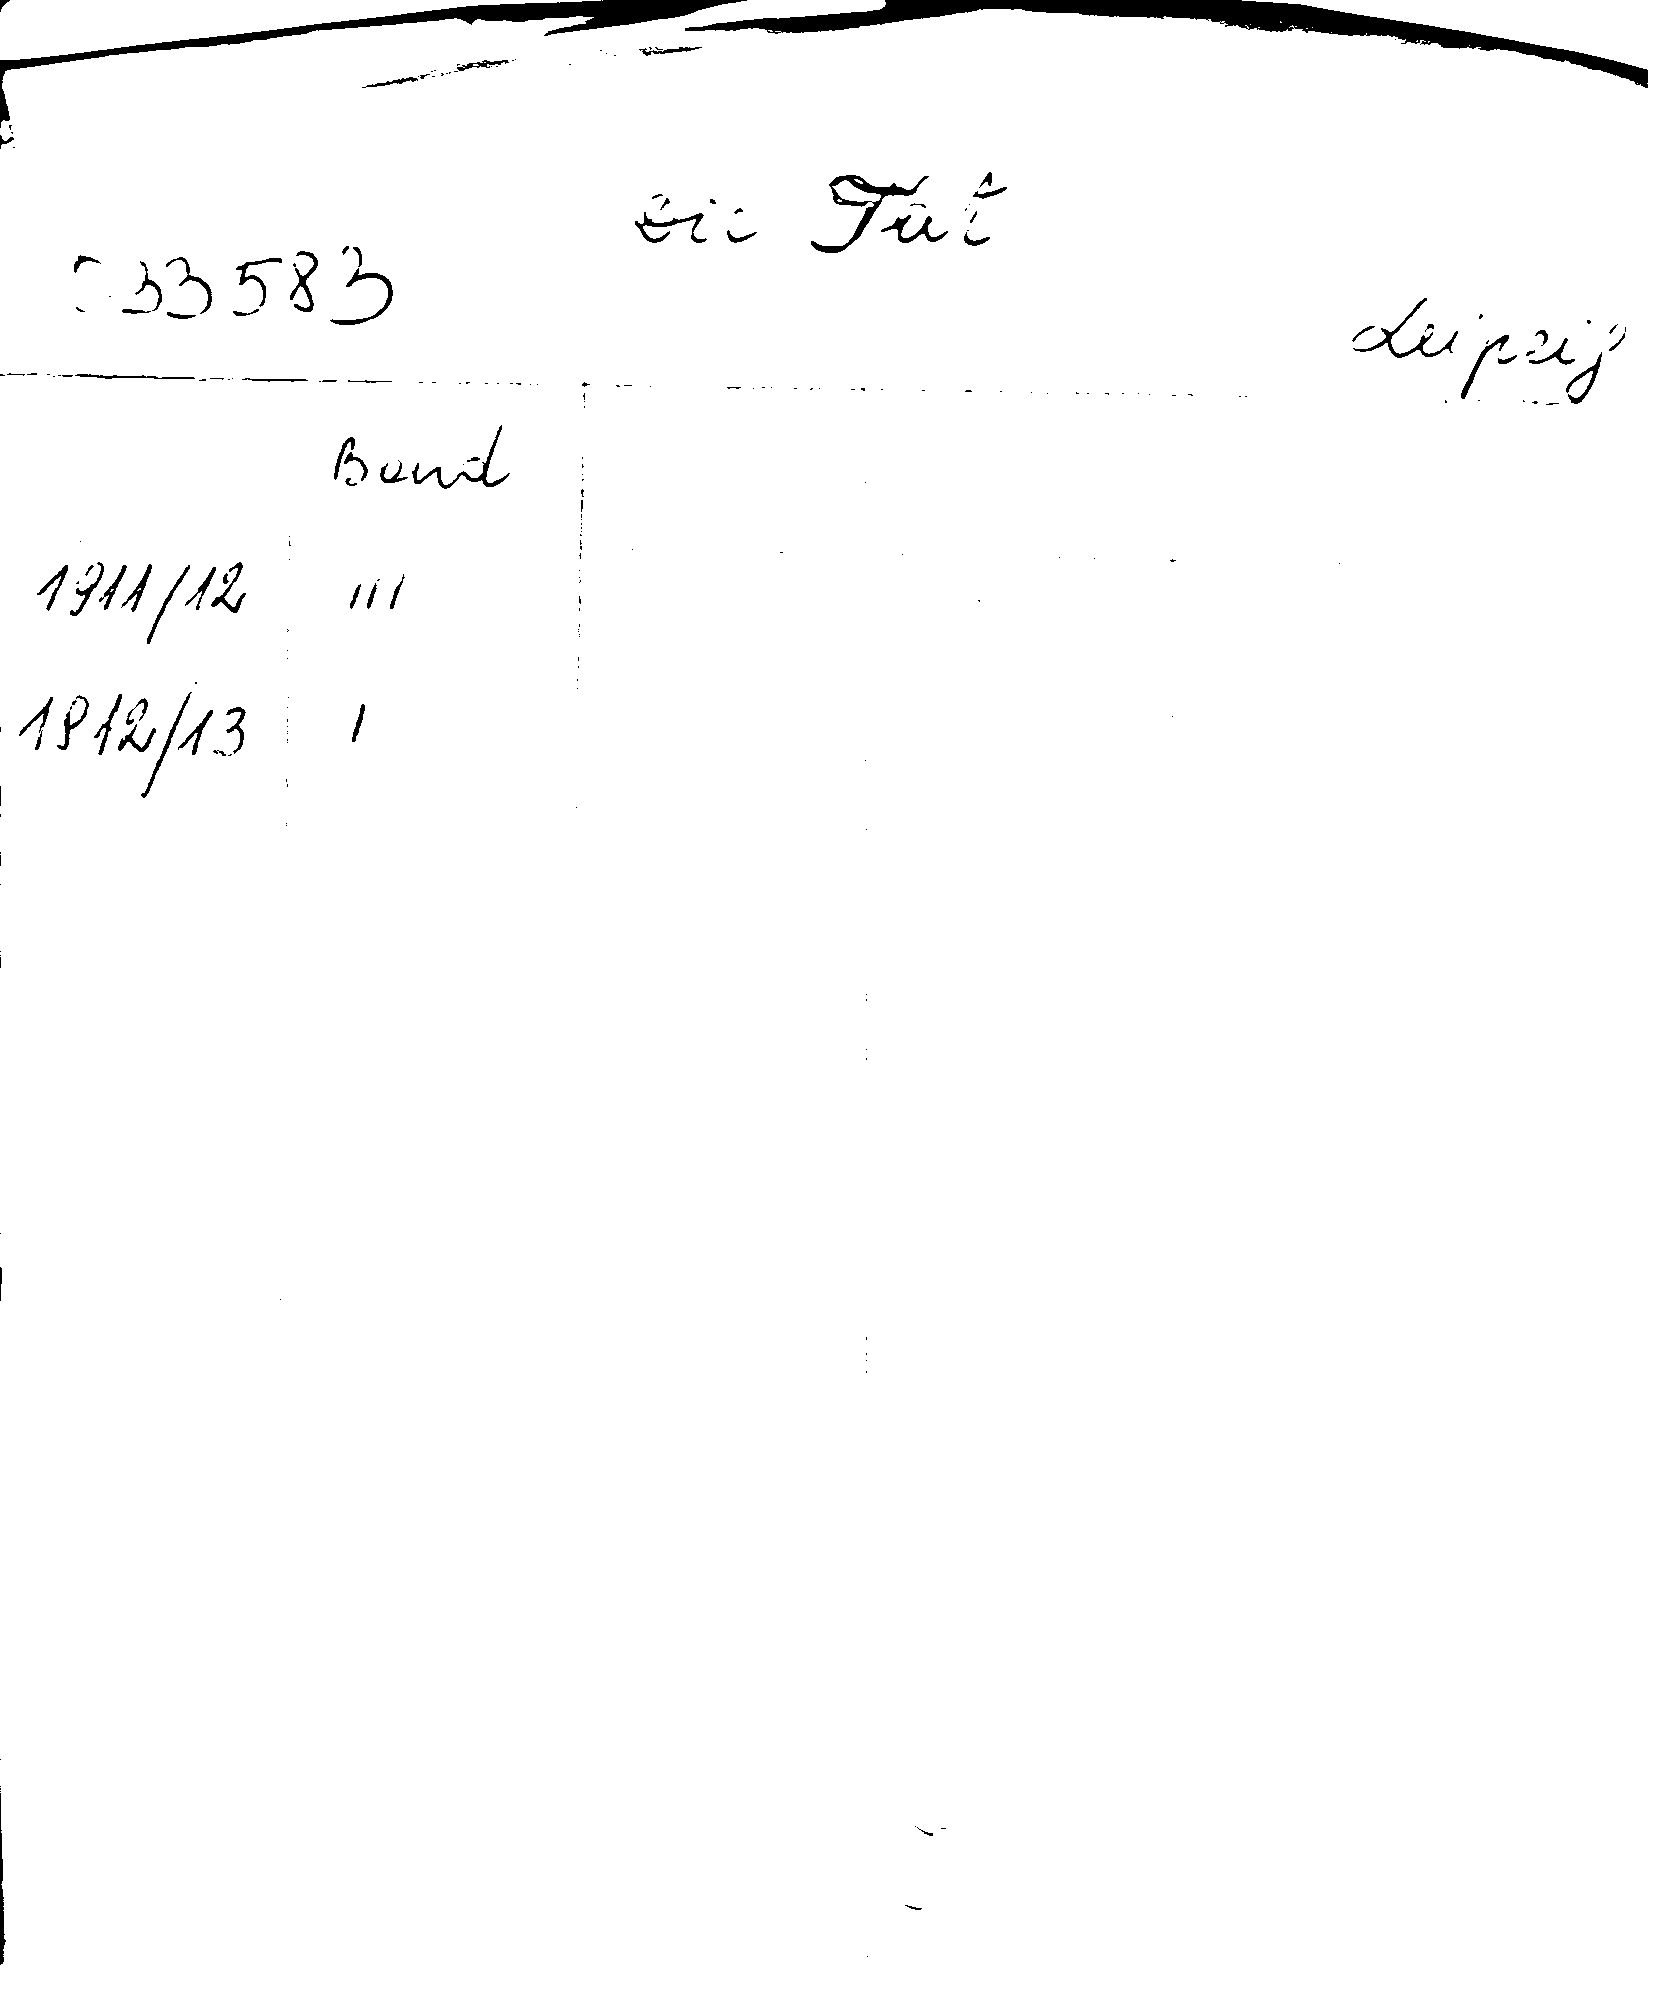 Die Tat
33583
Leipzig
Band
1911/12 III
1912/13 I